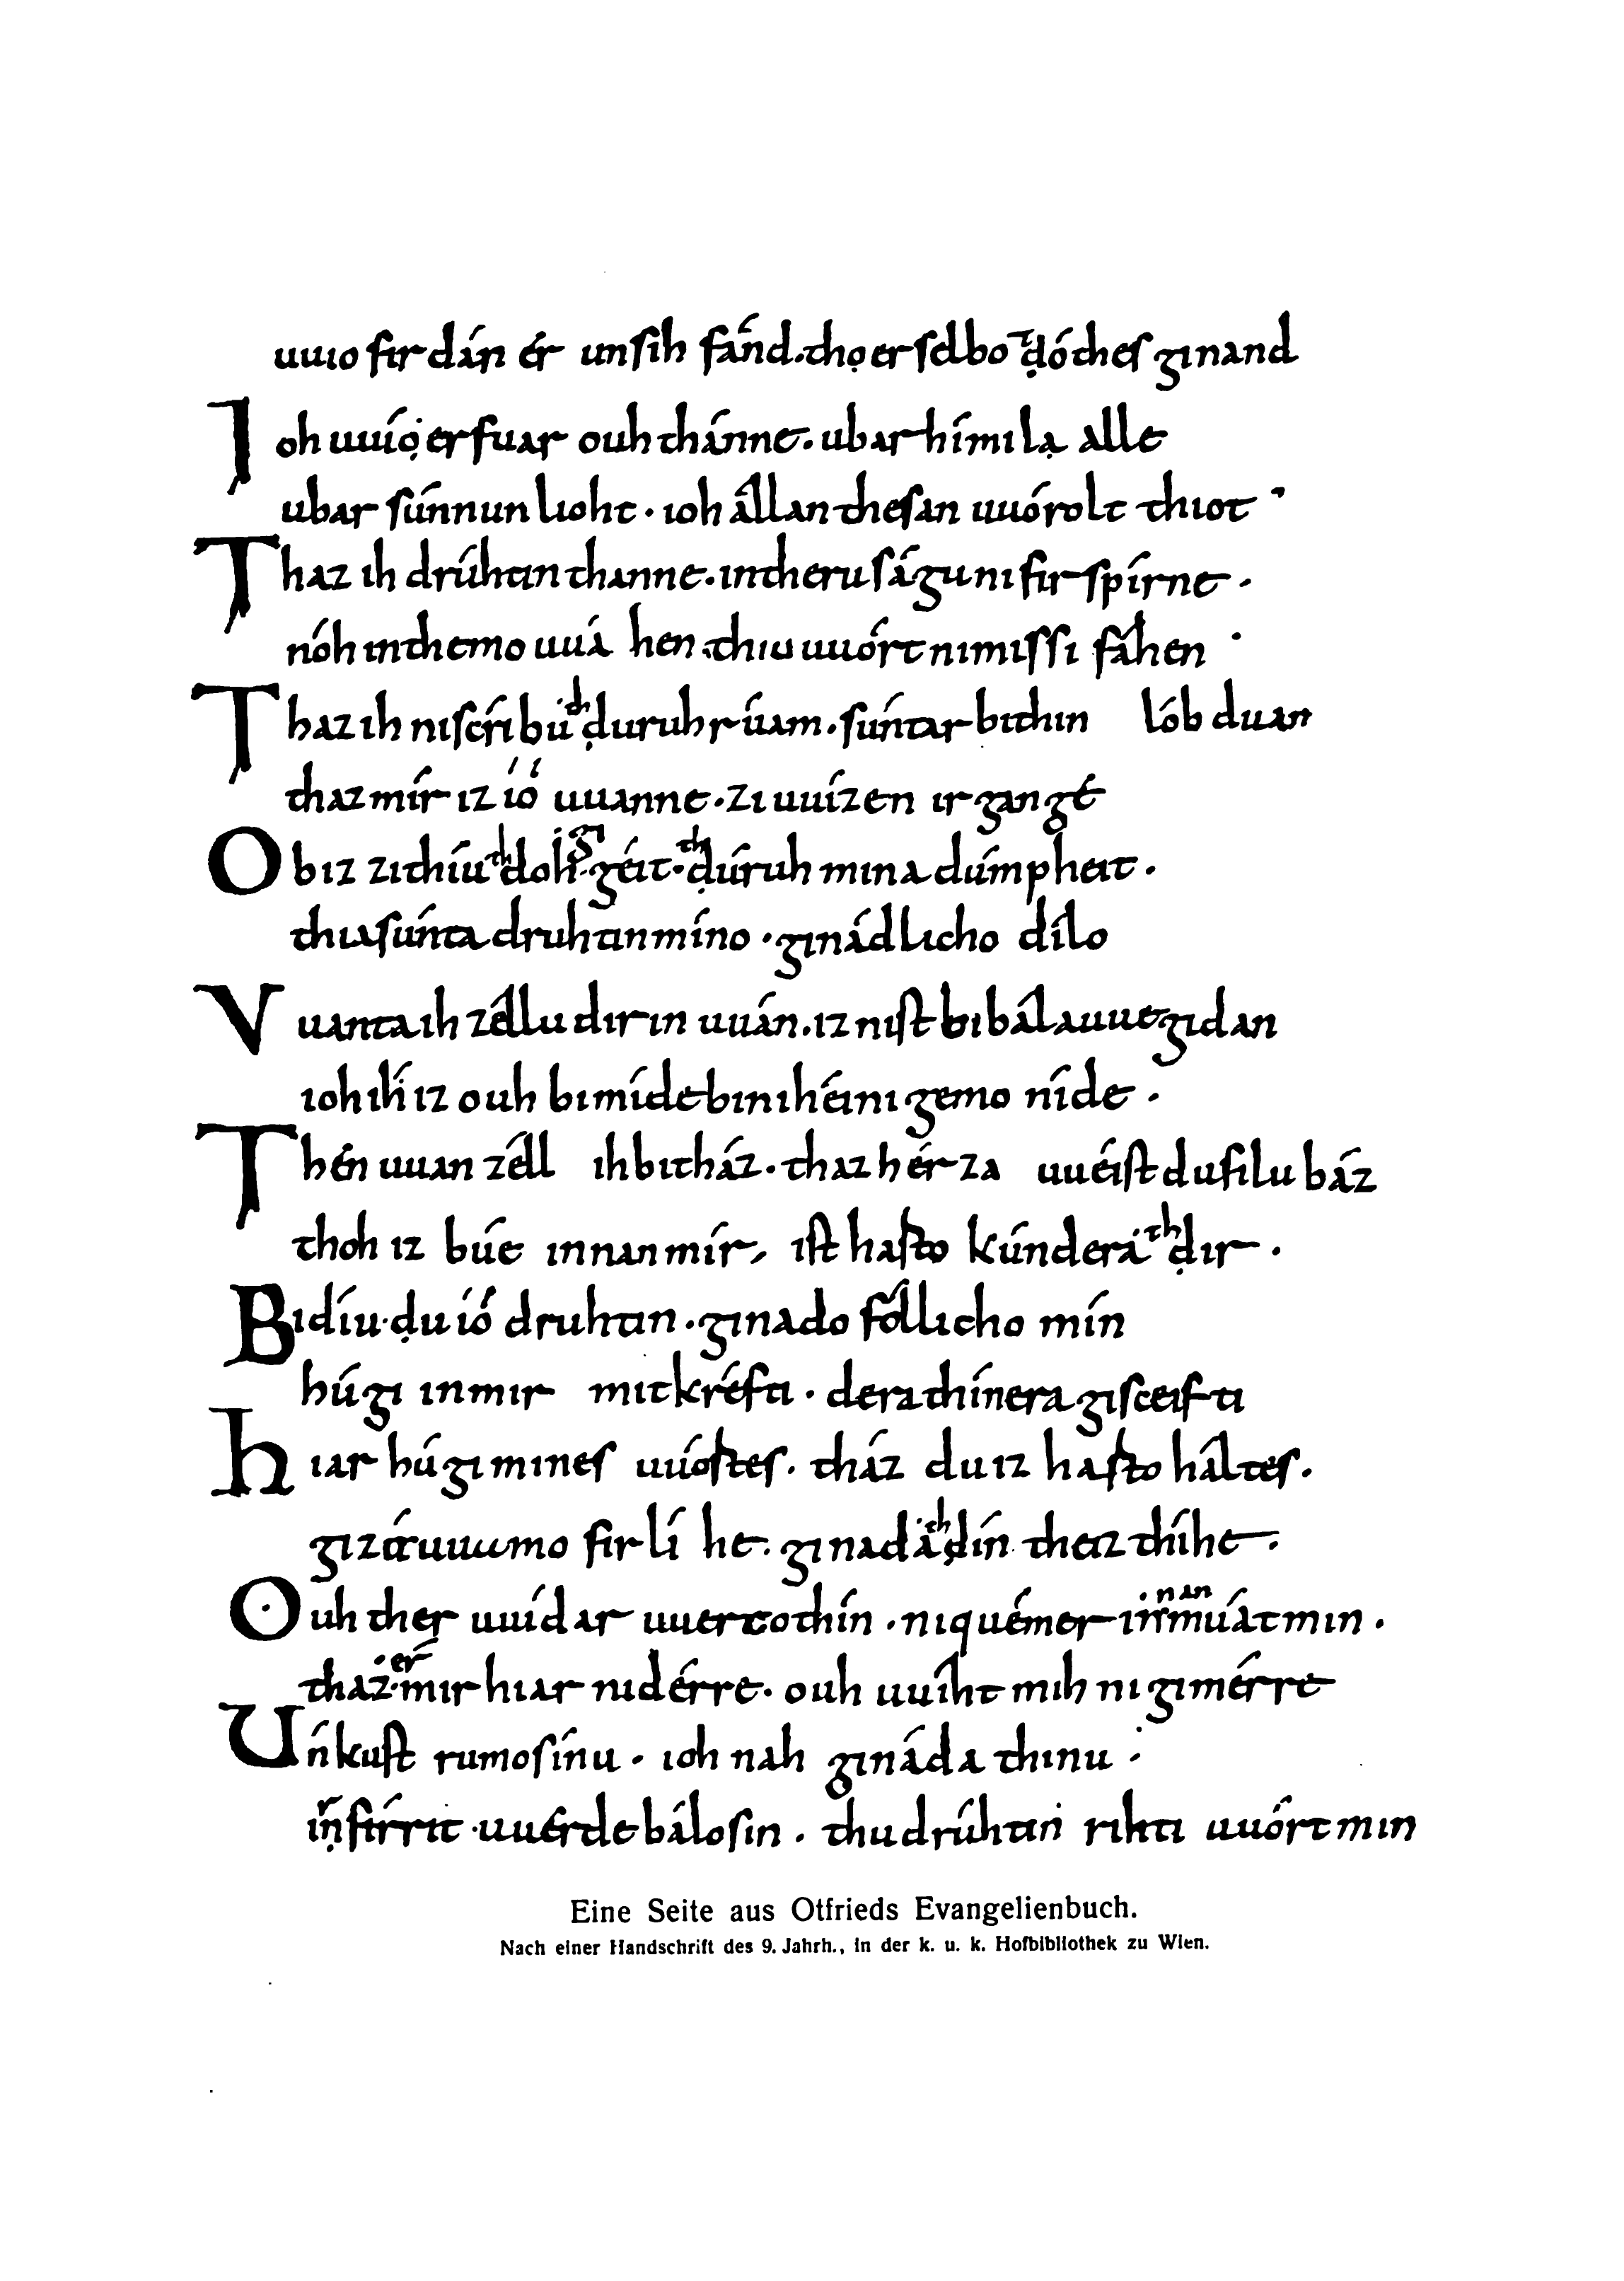 uuio firdán ér unsih fánd. thọ er selbo tḍóthes ginand
Ioh uuíọ er fuar ouh thánne. ubar hímila alle
ubar súnnun lioht. ioh állan thesan uuórolt thiot
Thaz ih drúhtin thanne. in theru ságu ni firspírne.
nóh in themo uuáhen. thiu uuórt ni missifáhen
Thaz ih ni scríbu thḍuruh rúam. súntar bi thin lób duan
thaz mír iz íó uuanne. zi uuízen irgangé
Obiz zi thíu thdoh gigéit. thḍúruh mina dúmpheit.
thia súnta druhtin míno. ginádlicho dílo
Vuanta ih zéllu dir in uuán. iz nist bi bálauue gidan
ioh ih iz ouh bimíde bi niheinigemo níde.
Thén uuan zéll ih bi tház. thaz hérza uuéist du filu báz
thoh iz búe innan mír, ist hafto kúndera thḍir.
Bidíu ḍu íó druhtin. ginado fóllicho mín
húgi in mir mit kréfti. dera thínera gisceifti
hiar húgi mines uuórtes. tház du iz hafto háltes.
gizáuua mo firlíhe. ginada thḍín theiz thíhe.
Ouh ther uuídaruuerto thín. ni quémer innan múat min.
thaz er mir hiar ni dérre. ouh uuíht mih ni gimérre
Únkust rumo sínu. ioh nah gináda thinu
irfirrit uuérde bálo sin. thu drúhtin rihti uuórt min
Eine Seite aus Otfrieds Evangelienbuch.
Nach einer Handschrift des 9. Jahrh., in der k. u. k. Hofbibliothek zu Wien.